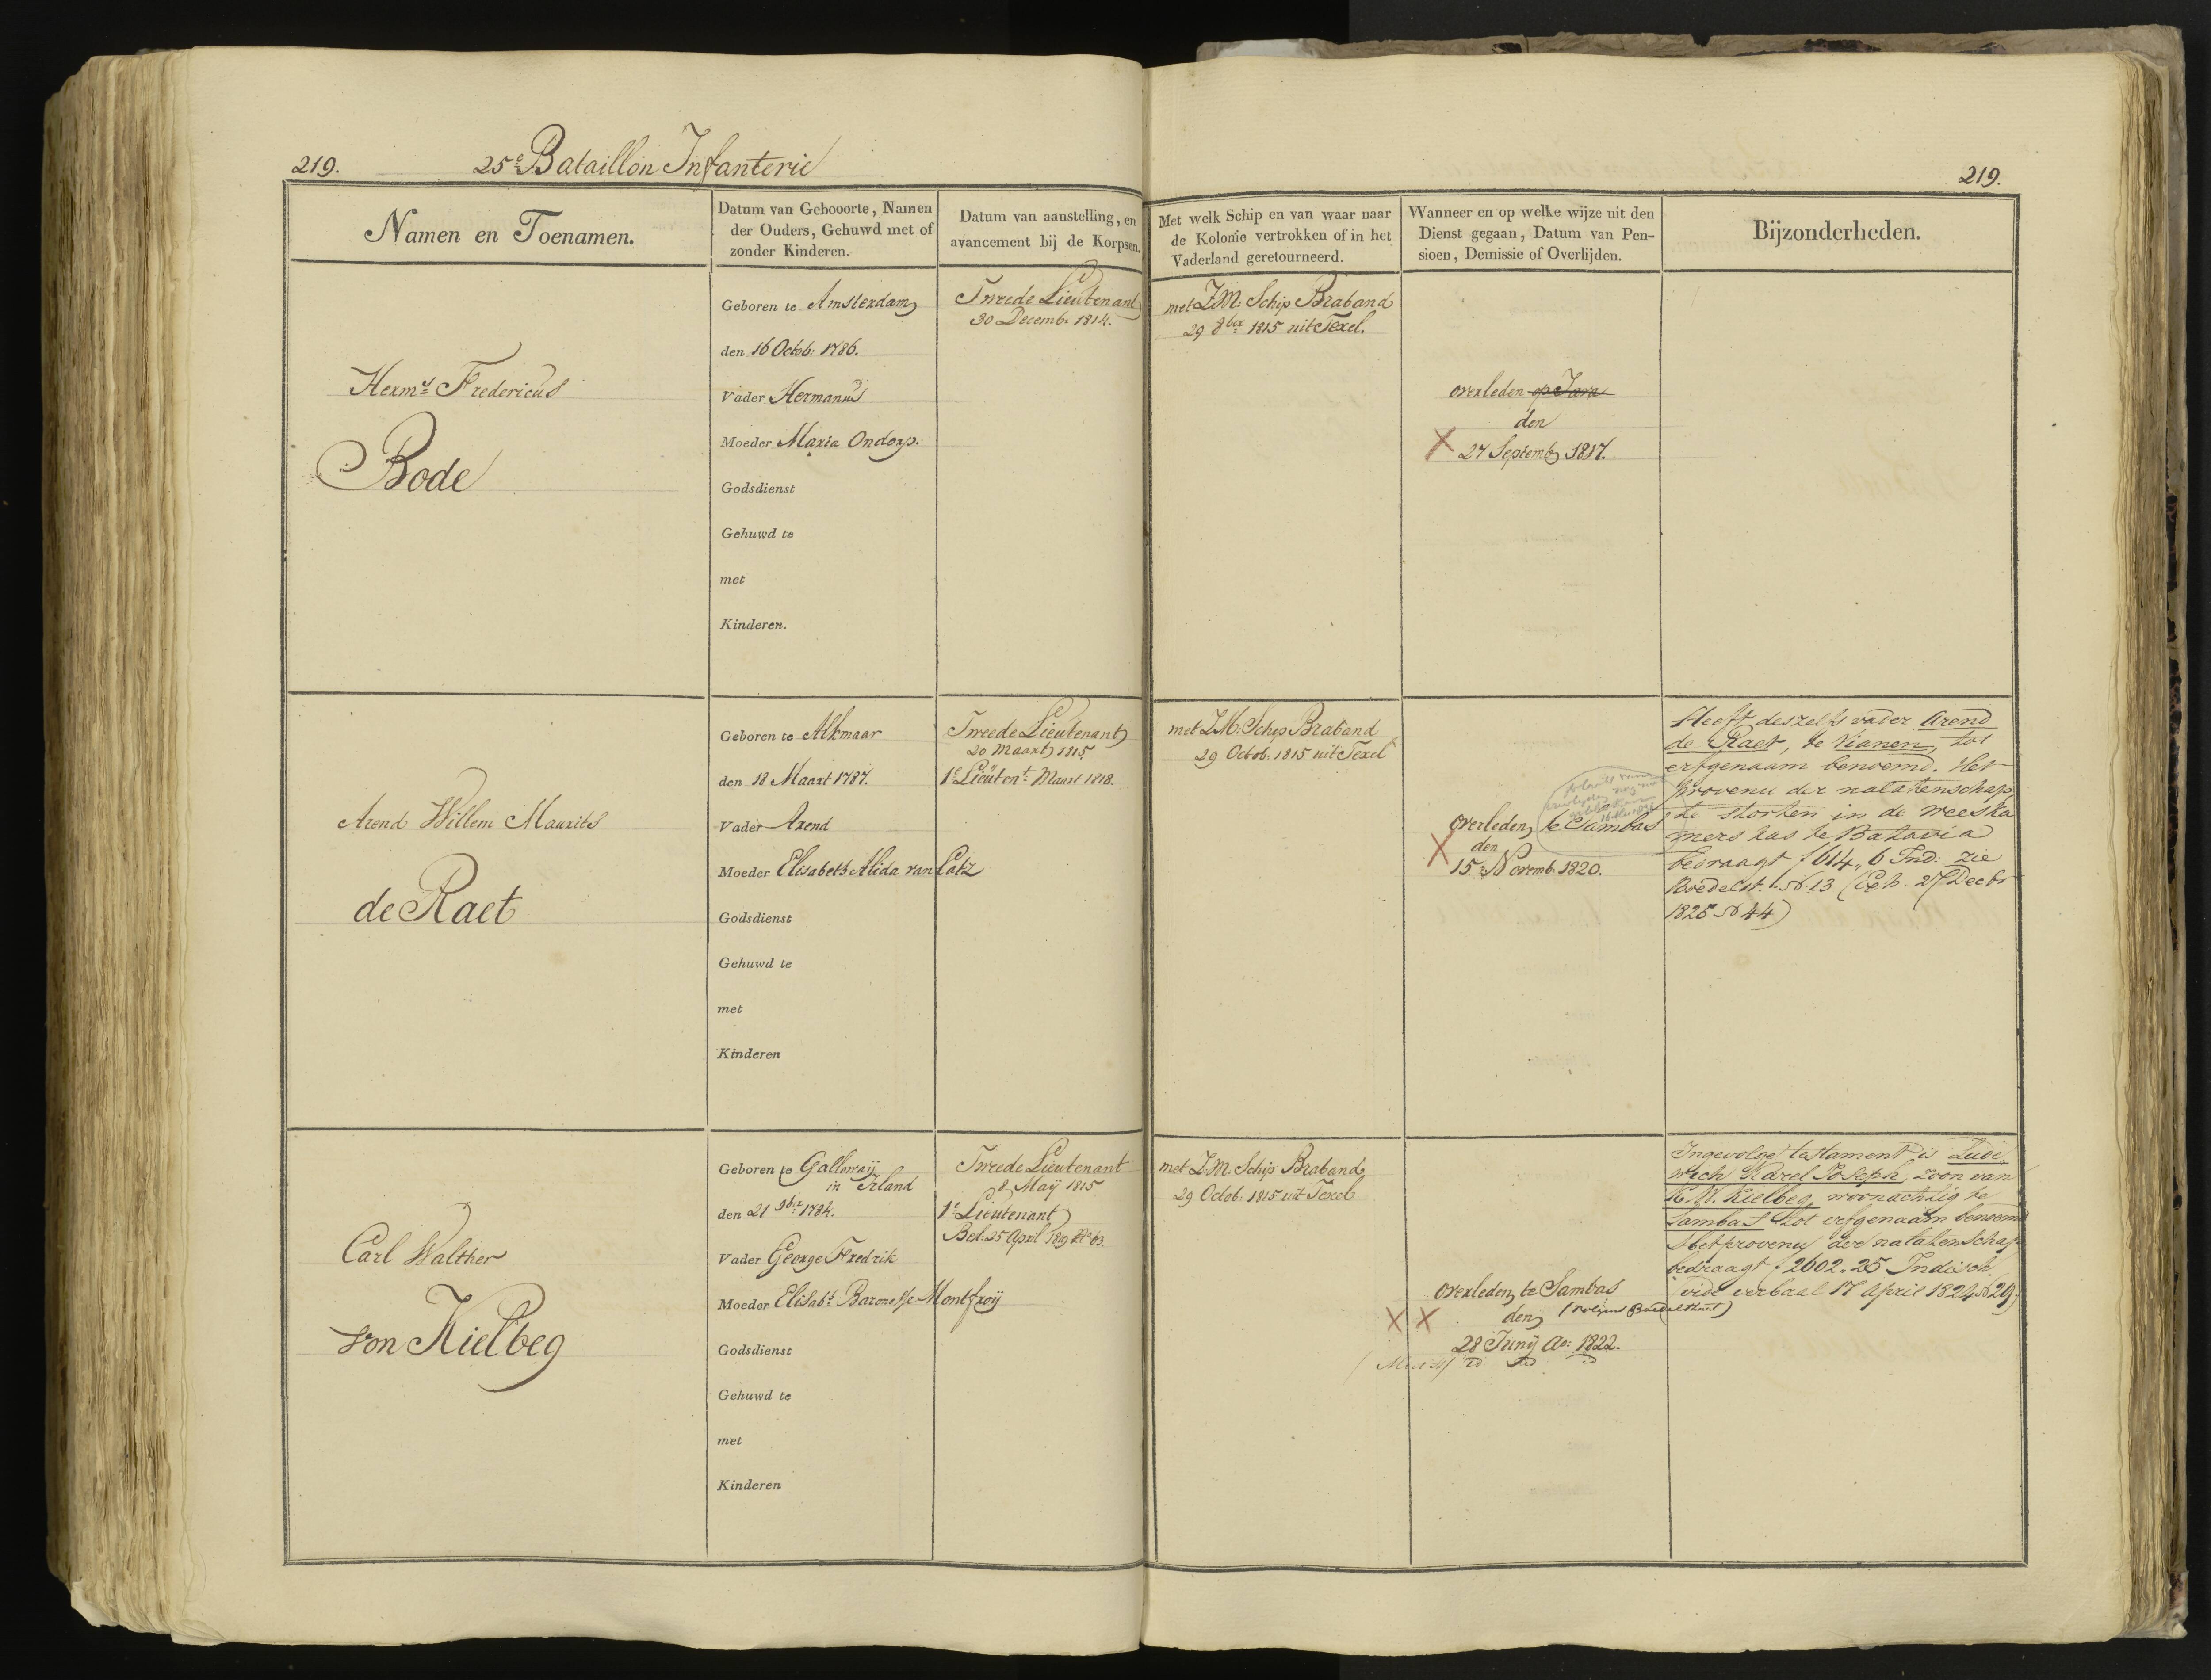 219.
25e Bataillon Infanterie
219.
Namen en Toenamen.
Datum van Gebooorte, Namen
der Ouders, Gehuwd met of
zonder Kinderen.
Datum van aanstelling, en
avancement bij de Korpsen.
Met welk Schip en van waar naar
de Kolonie vertrokken of in het
Vaderland geretourneerd.
Wanneer en op welke wijze uit den
Dienst gegaan, Datum van Pen-
sioen, Demissie of Overlijden.
Bijzonderheden.
Hermˢ Fredericus
Bode
Geboren te Amsterdam
den 16 Octob: 1786.
Vader Hermanus
Moeder Maria Ondorp.
Godsdienst
Gehuwd te
met
Kinderen.
Tweede Lieutenant
30 Decemb: 1814.
met Z.M. Schip Braband
29 8ber 1815 uit Texel.
overleden op Java
den
X 27 Septemb 1817.
Arend Willem Maurits
de Raet
Geboren te Alkmaar
den 18 Maart 1787.
Vader Arend
Moeder Elisabeth Alida van Catz
Godsdienst
Gehuwd te
met
Kinderen
Tweede Lieutenant
20 Maart 1815
1e Lieutent Maart 1818.
met Z.M. Schip Braband
29 Octob: 1815 uit Texel
overleden te Sambas
den
X 15 Novemb. 1820.
Heeft deszelfs vader Arend
de Raet, te Vianen, tot
erfgenaam benoemd. Het
provenu der nalatenschap
te storten in de weeska
mers kas te Batavia
bedraagt f 614,, 6 Ind: zie
Boedelst. No 13 (Exh. 27 Decbr
1825 No 44)
Carl Walther
von Kielbeg
Geboren te Galloway
in Irland
den 21 9ber 1784.
Vader George Fredrik
Moeder Elisabt Baronesse Montfroij
Godsdienst
Gehuwd te
met
Kinderen
Tweede Lieutenant
8 Maij 1815
1e Lieutenant
Bel: 25 April 1819 No 63.
met Z.M. Schip Braband
29 Octob: 1815 uit Texel
overleden te Sambas
X X den (volgens Boedelstaat)
28 Junij Ao: 1822.
Ingevolge testament is Lude
wich Karel Joseph, zoon van
K.W. Kielbeg, woonachtig te
Sambas tot erfgenaam benoemd
Het provenu der nalatenschap
bedraagt f 2602.25 Indisch
(vide verbaal 17 April 1824 No 29)